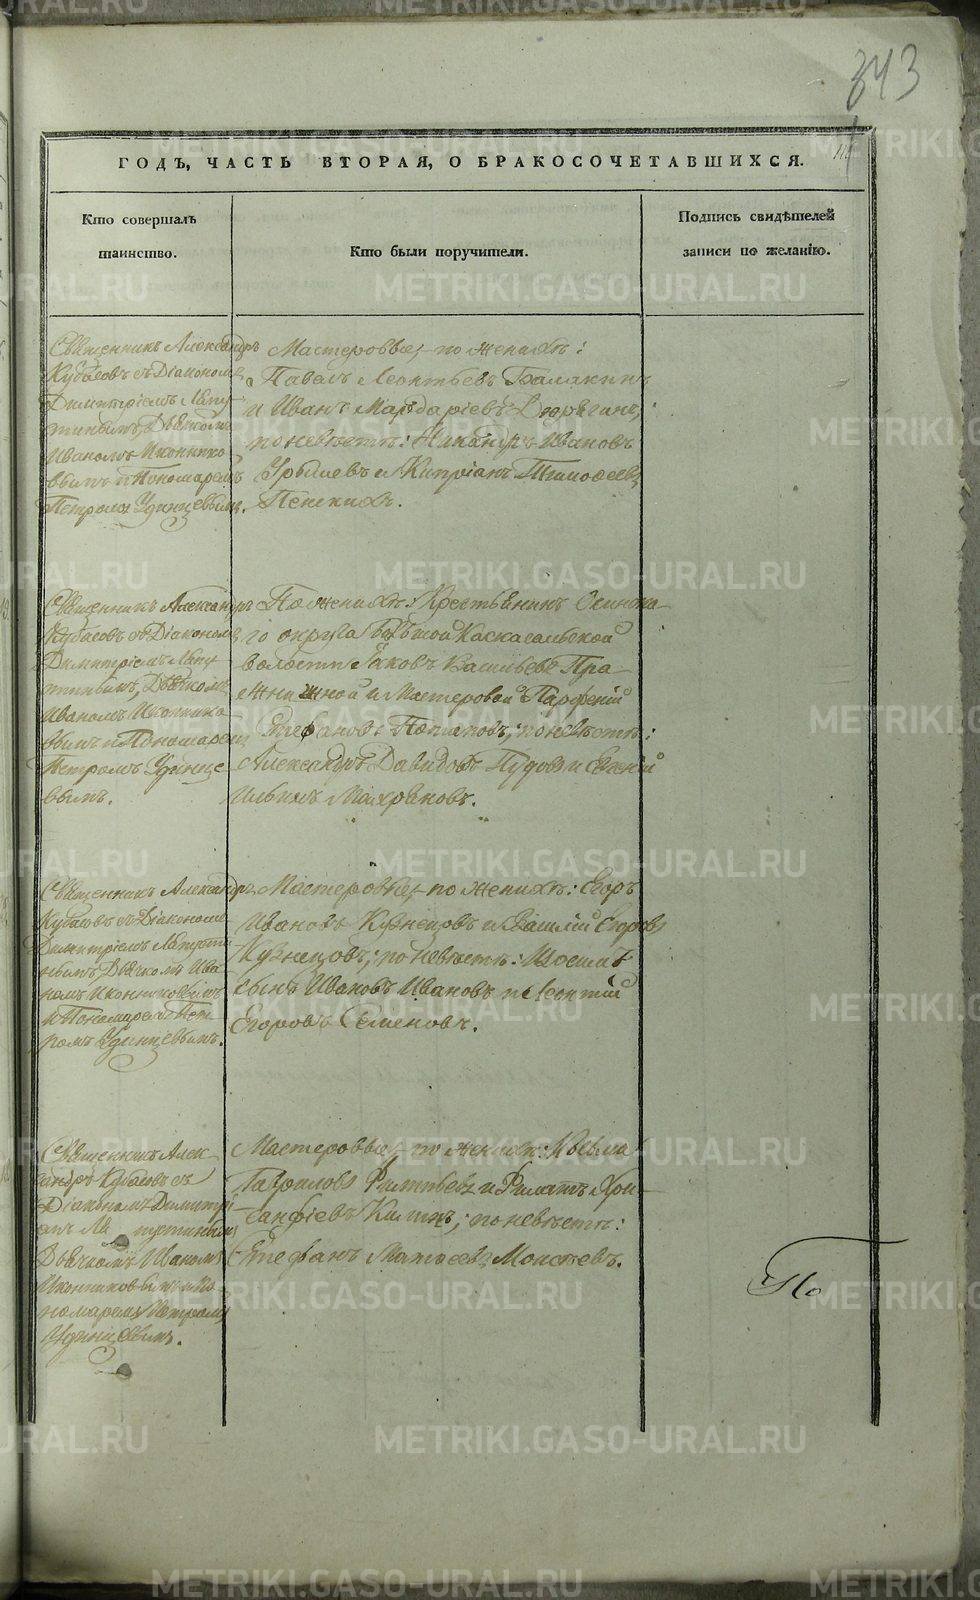 343
ГОДЪ, ЧАСТЬ ВТОРАЯ, О БРАКОСОЧЕТАВШИХСЯ.
Кто совершалъ
таинство.
Кто были поручители.
Подпись свидѣтелей
записи по желанію.
Священникъ Александръ
Кубасовъ съ Діакономъ
Димитріемъ Лапу
тинымъ, Дьячкомъ
Иваномъ Иконнико
вымъ и Пономаремъ
Петромъ Удинцевымъ.
Мастеровые, по женихѣ:
Павелъ Леонтьевъ Балакинъ
и Иванъ Мардаріевъ
по невѣстѣ: Никандръ Ивановъ
и Кипріанъ Тимофеевъ
Пенскихъ.
Священникъ Александръ
Кубасовъ съ Діакономъ
Димитріемъ Лапу
тинымъ, Дьячкомъ
Иваномъ Иконнико
вымъ и Пономаремъ
Петромъ Удинце
вымъ.
По женихѣ: Крестьянинъ Осинска
го округа
волости Яковъ Васильевъ
и Мастеровой Парфеній
Стефановъ Потаповъ, по невѣстѣ:
Александръ Давидовъ Пудовъ и Евгеній
Ильинъ Махряковъ.
Священникъ Александръ
Кубасовъ съ Діакономъ
Димитріемъ Лапути
нымъ, Дьячкомъ Ива
номъ Иконниковымъ
и Пономаремъ Пет
ромъ Удинцевымъ.
Мастеровые, по женихѣ: Егоръ
Ивановъ Кузнецовъ и Василій Егоровъ
Кузнецовъ; по невѣстѣ:
сынъ Ивановъ Ивановъ и Леонтій
Егоровъ Семеновъ.
Священникъ Алек
сандръ Кубасовъ съ
Діакономъ Димитрі
емъ Лапутинымъ
Дьячкомъ Иваномъ
Иконниковымъ и По
номаремъ Петромъ
Удинцевымъ.
Мастеровые, по женихѣ: Козьма
Гавриловъ и Филатъ Хри
санфіевъ по невѣстѣ:
Стефанъ Матвеевъ Мокеевъ.
По
METRIKI.GASO-URAL.RU